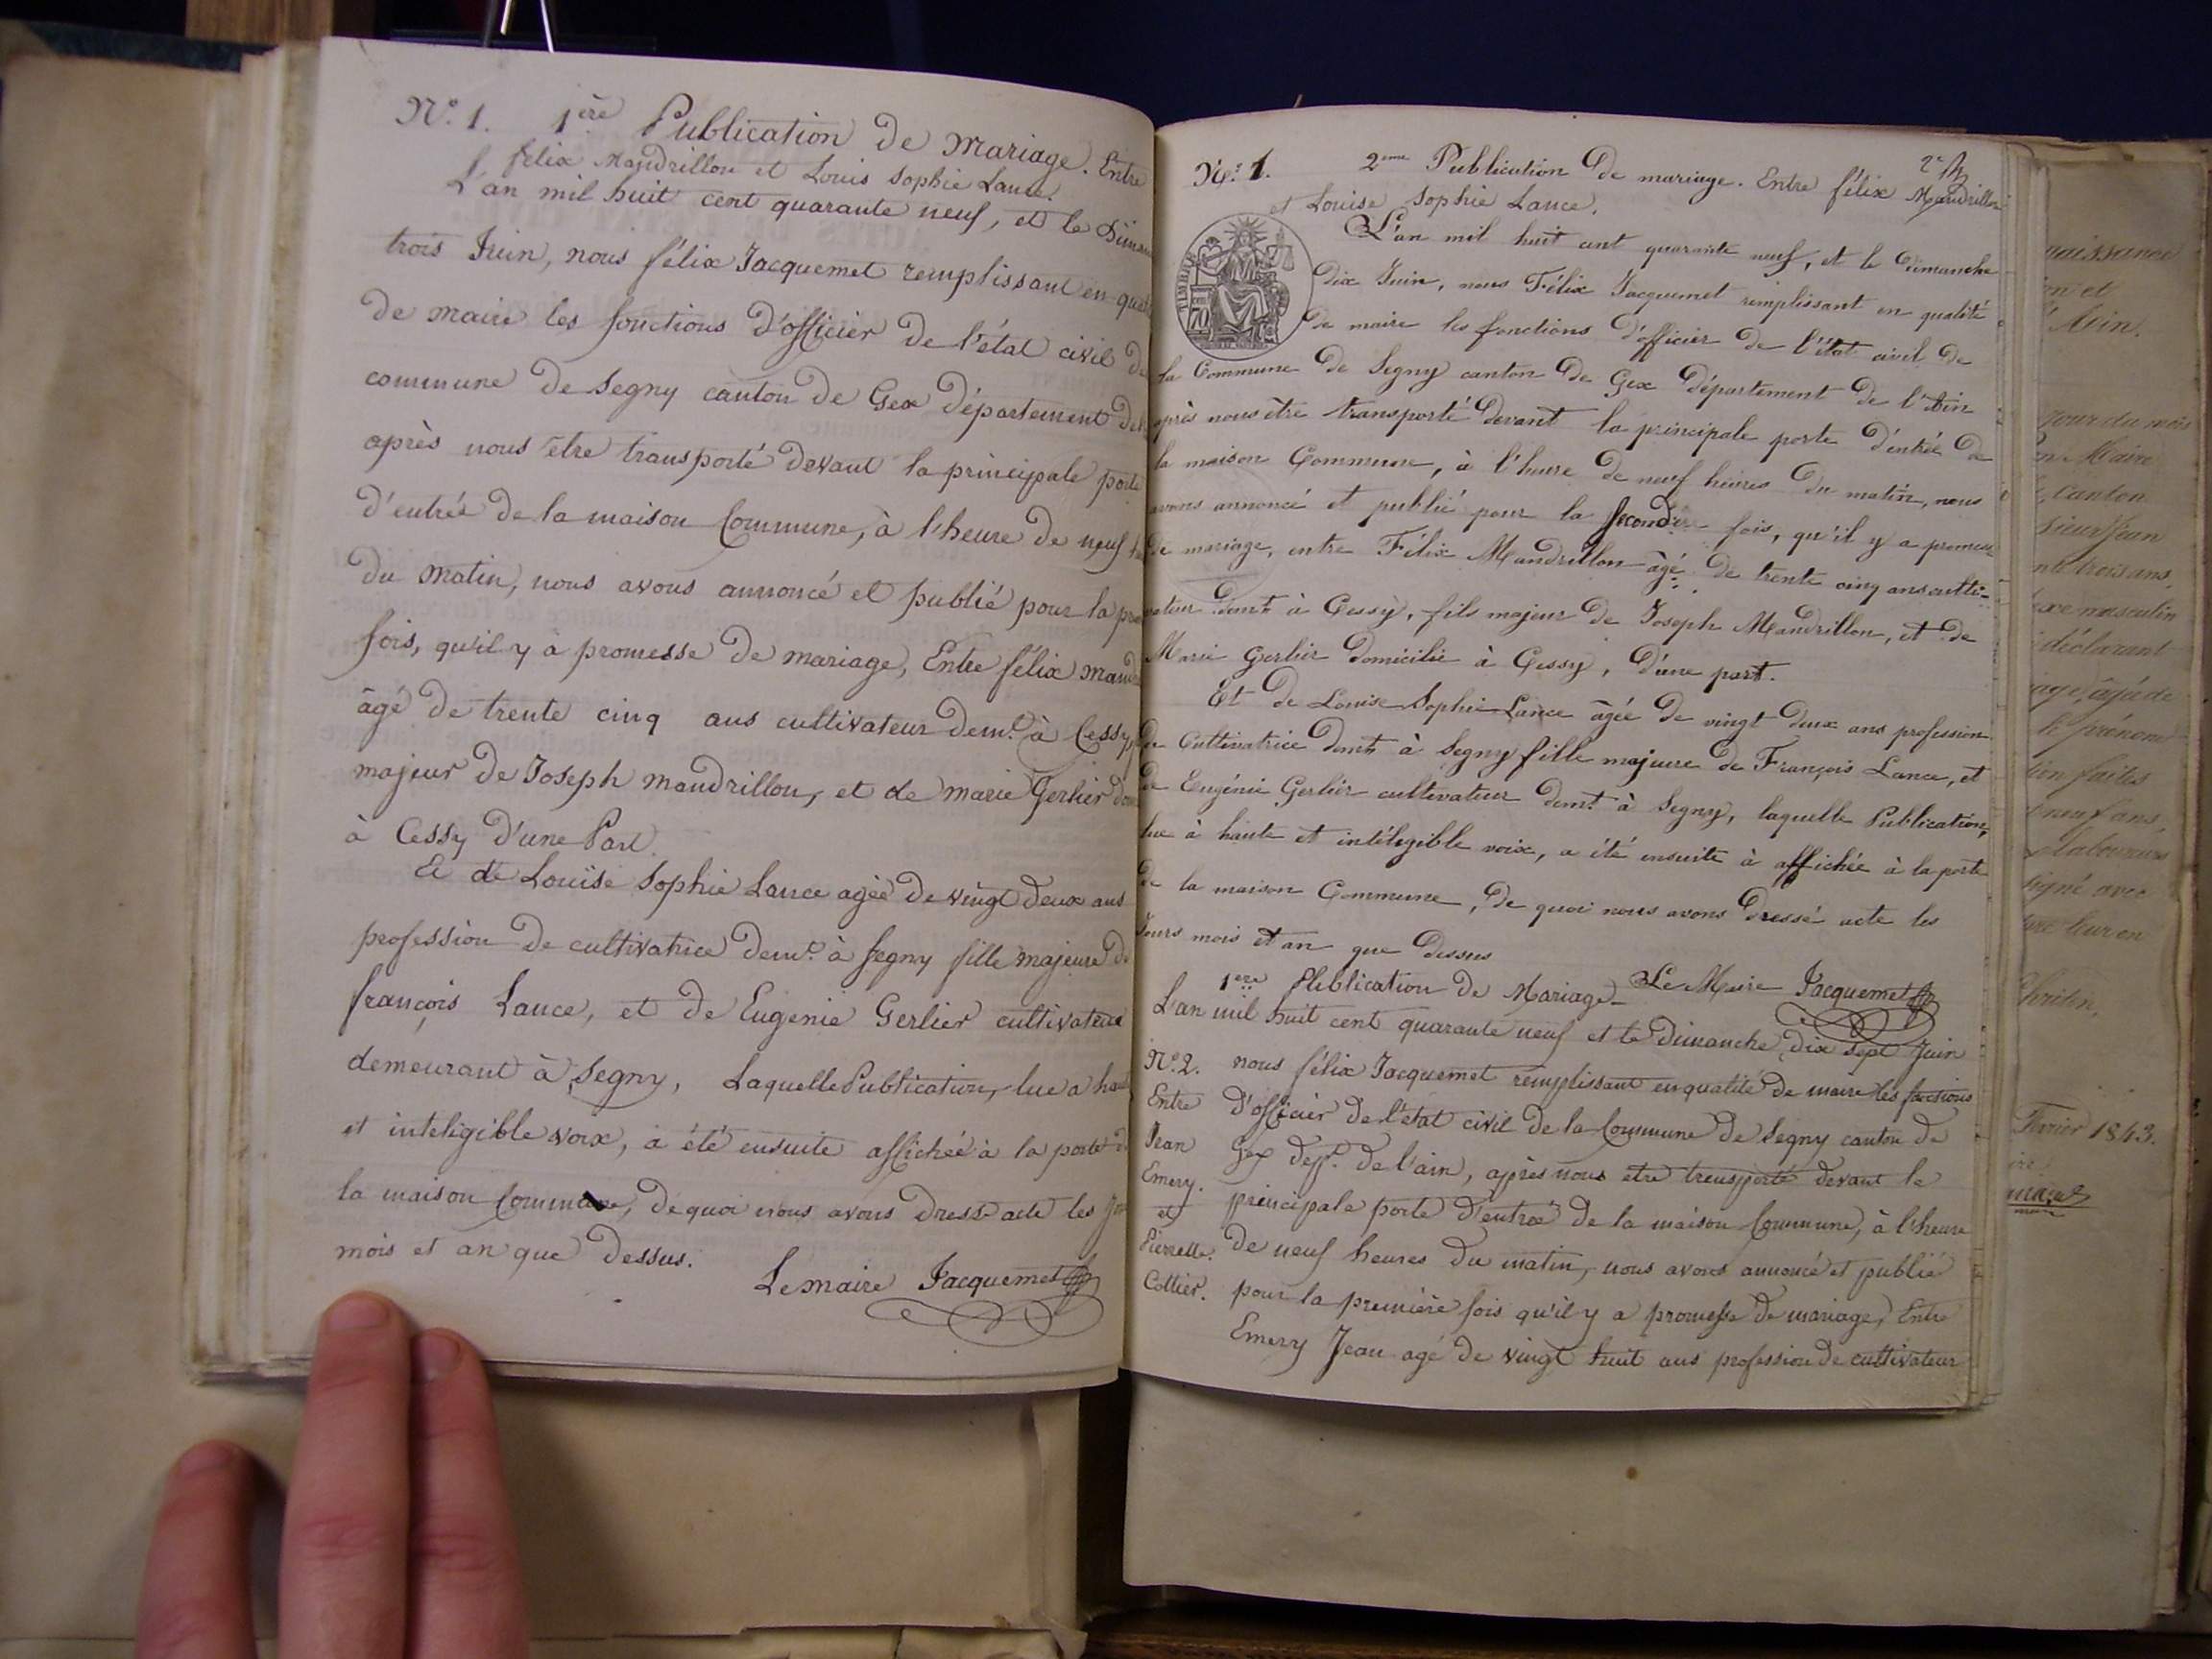 N.º 1. 1ère Publication de Mariage. Entre
félix Mandrillon et Louis Sophie Lance.
L'an mil huit cent quarante neuf, et le
trois Juin, nous félix Jacquemet remplissant en
de maire les fonctions d'officier de l'état civil de
commune de Segny canton de Gex département de
après nous être transporté devant la principale porte
d'entrée de la maison Commune, à l'heure de neuf
du matin, nous avons annoncé et publié pour la
fois, qu'il y à promesse de mariage, Entre félix
âgé de trente cinq ans cultivateur demt à Cessy,
majeur de Joseph mandrillon, et de marie Gerlier
à Cessy d'une Part.
Et de Louise Sophie Lance agée de vingt deux ans
profession de cultivatrice demt à Segny fille majeure de
françois Lance, et de Eugenie Gerlier cultivateur
demeurant à Segny, Laquelle Publication, lue a
et inteligible voix, a été ensuite affichée à la porte
la maison Commune, de quoi nous avons dressé acte les
mois et an que dessus.
Le maire Jacquemet
N.º 1. 2eme Publication de mariage. Entre félix Mandrillon
et Louise Sophie Lance.
L'an mil huit cent quarante neuf, et le dimanche
dix Juin, nous Félix Jacquemet remplissant en qualité
de maire les fonctions d'officier de l'état civil de
la Commune de Segny canton de Gex département de l'Ain
après nous être transporté devant la principale porte d'entrée de
la maison Commune, à l'heure de neuf heures du matin, nous
avons annoncé et publié pour la fois, qu'il y a promesse
de mariage, entre Félix Mandrillon âgé de trente cinq ans culti-
vateur demt à Cessy, fils majeur de Joseph Mandrillon, et de
Marie Gerlier domicilié à Cessy, d'une part.
Et de Louise Sophie Lance âgée de vingt deux ans profession
de Cultivatrice demt à Segny fille majeure de François Lance, et
de Eugénie Gerlier cultivateur demt à Segny, laquelle Publication,
lue à haute et intéligible voix, a été ensuite à affichée à la porte
de la maison Commune, de quoi nous avons dressé acte les
Jours mois et an que dessus
Le Maire Jacquemet
1ere Publication de Mariage
L'an mil huit cent quarante neuf et le dimanche dix sept Juin
N.º 2. nous félix Jacquemet remplissant en qualité de maire les fonctions
Entre d'officier de l'état civil de la Commune de Segny canton de
Jean Gex dept. de l'ain, après nous etre transporté devant la
Emery. principale porte d'entrée de la maison Commune, à l'heure
et de neuf heures du matin, nous avons annoncé et publié
Pierrette pour la première fois qu'il y a promesse de mariage, Entre
Cottier. Emery Jean agé de vingt huit ans profession de cultivateur
TIMBRE
naissance
l'Ain.
jour du mois
Maire
canton
sieur Jean
trois ans,
sexe masculin
déclarant
âgé de
le prénom
faites
neuf ans,
laboureur
signé avec
Février 1843.